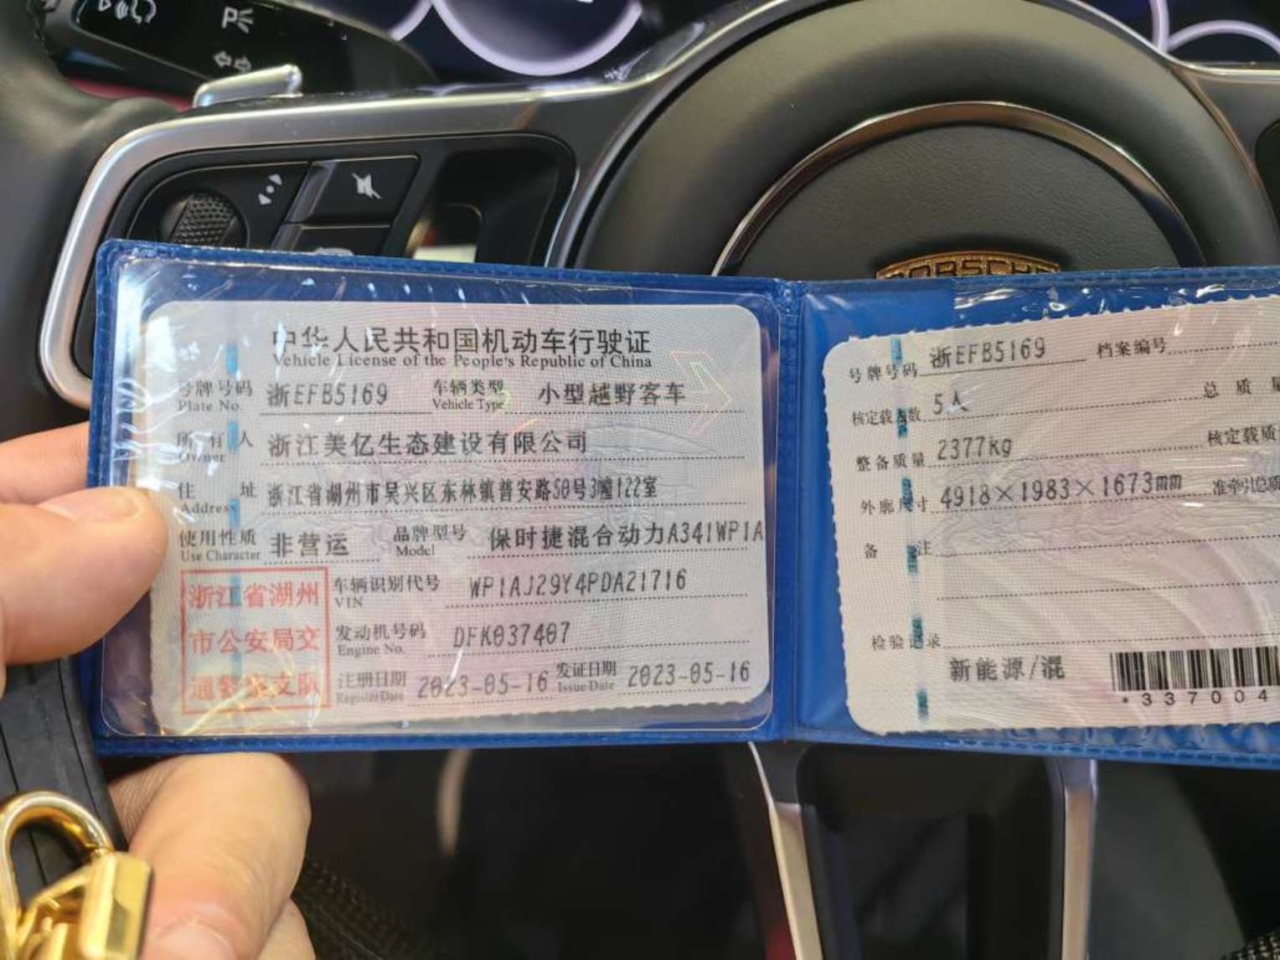 PORSCHE
中华人民共和国机动车行驶证
Vehicle License of the People's Republic of China
号牌号码 浙EFB5169 车辆类型 小型越野客车
Plate No. Vehicle Type
所有人 浙江美亿生态建设有限公司
Owner
住址 浙江省湖州市吴兴区东林镇普安路50号3幢122室
Address
使用性质 非营运 品牌型号 保时捷混合动力A341WP1A
Use Character Model
浙江省湖州
市公安局交
通警察支队
车辆识别代号 WP1AJ29Y4PDA21716
VIN
发动机号码 DFK037407
Engine No.
注册日期 2023-05-16 发证日期 2023-05-16
Register Date Issue Date
号牌号码 浙EFB5169 档案编号
核定载人数 5人 总质量
整备质量 2377kg 核定载质
外廓尺寸 4918×1983×1673mm 准牵引总质
备注
检验记录
新能源/混
*337004